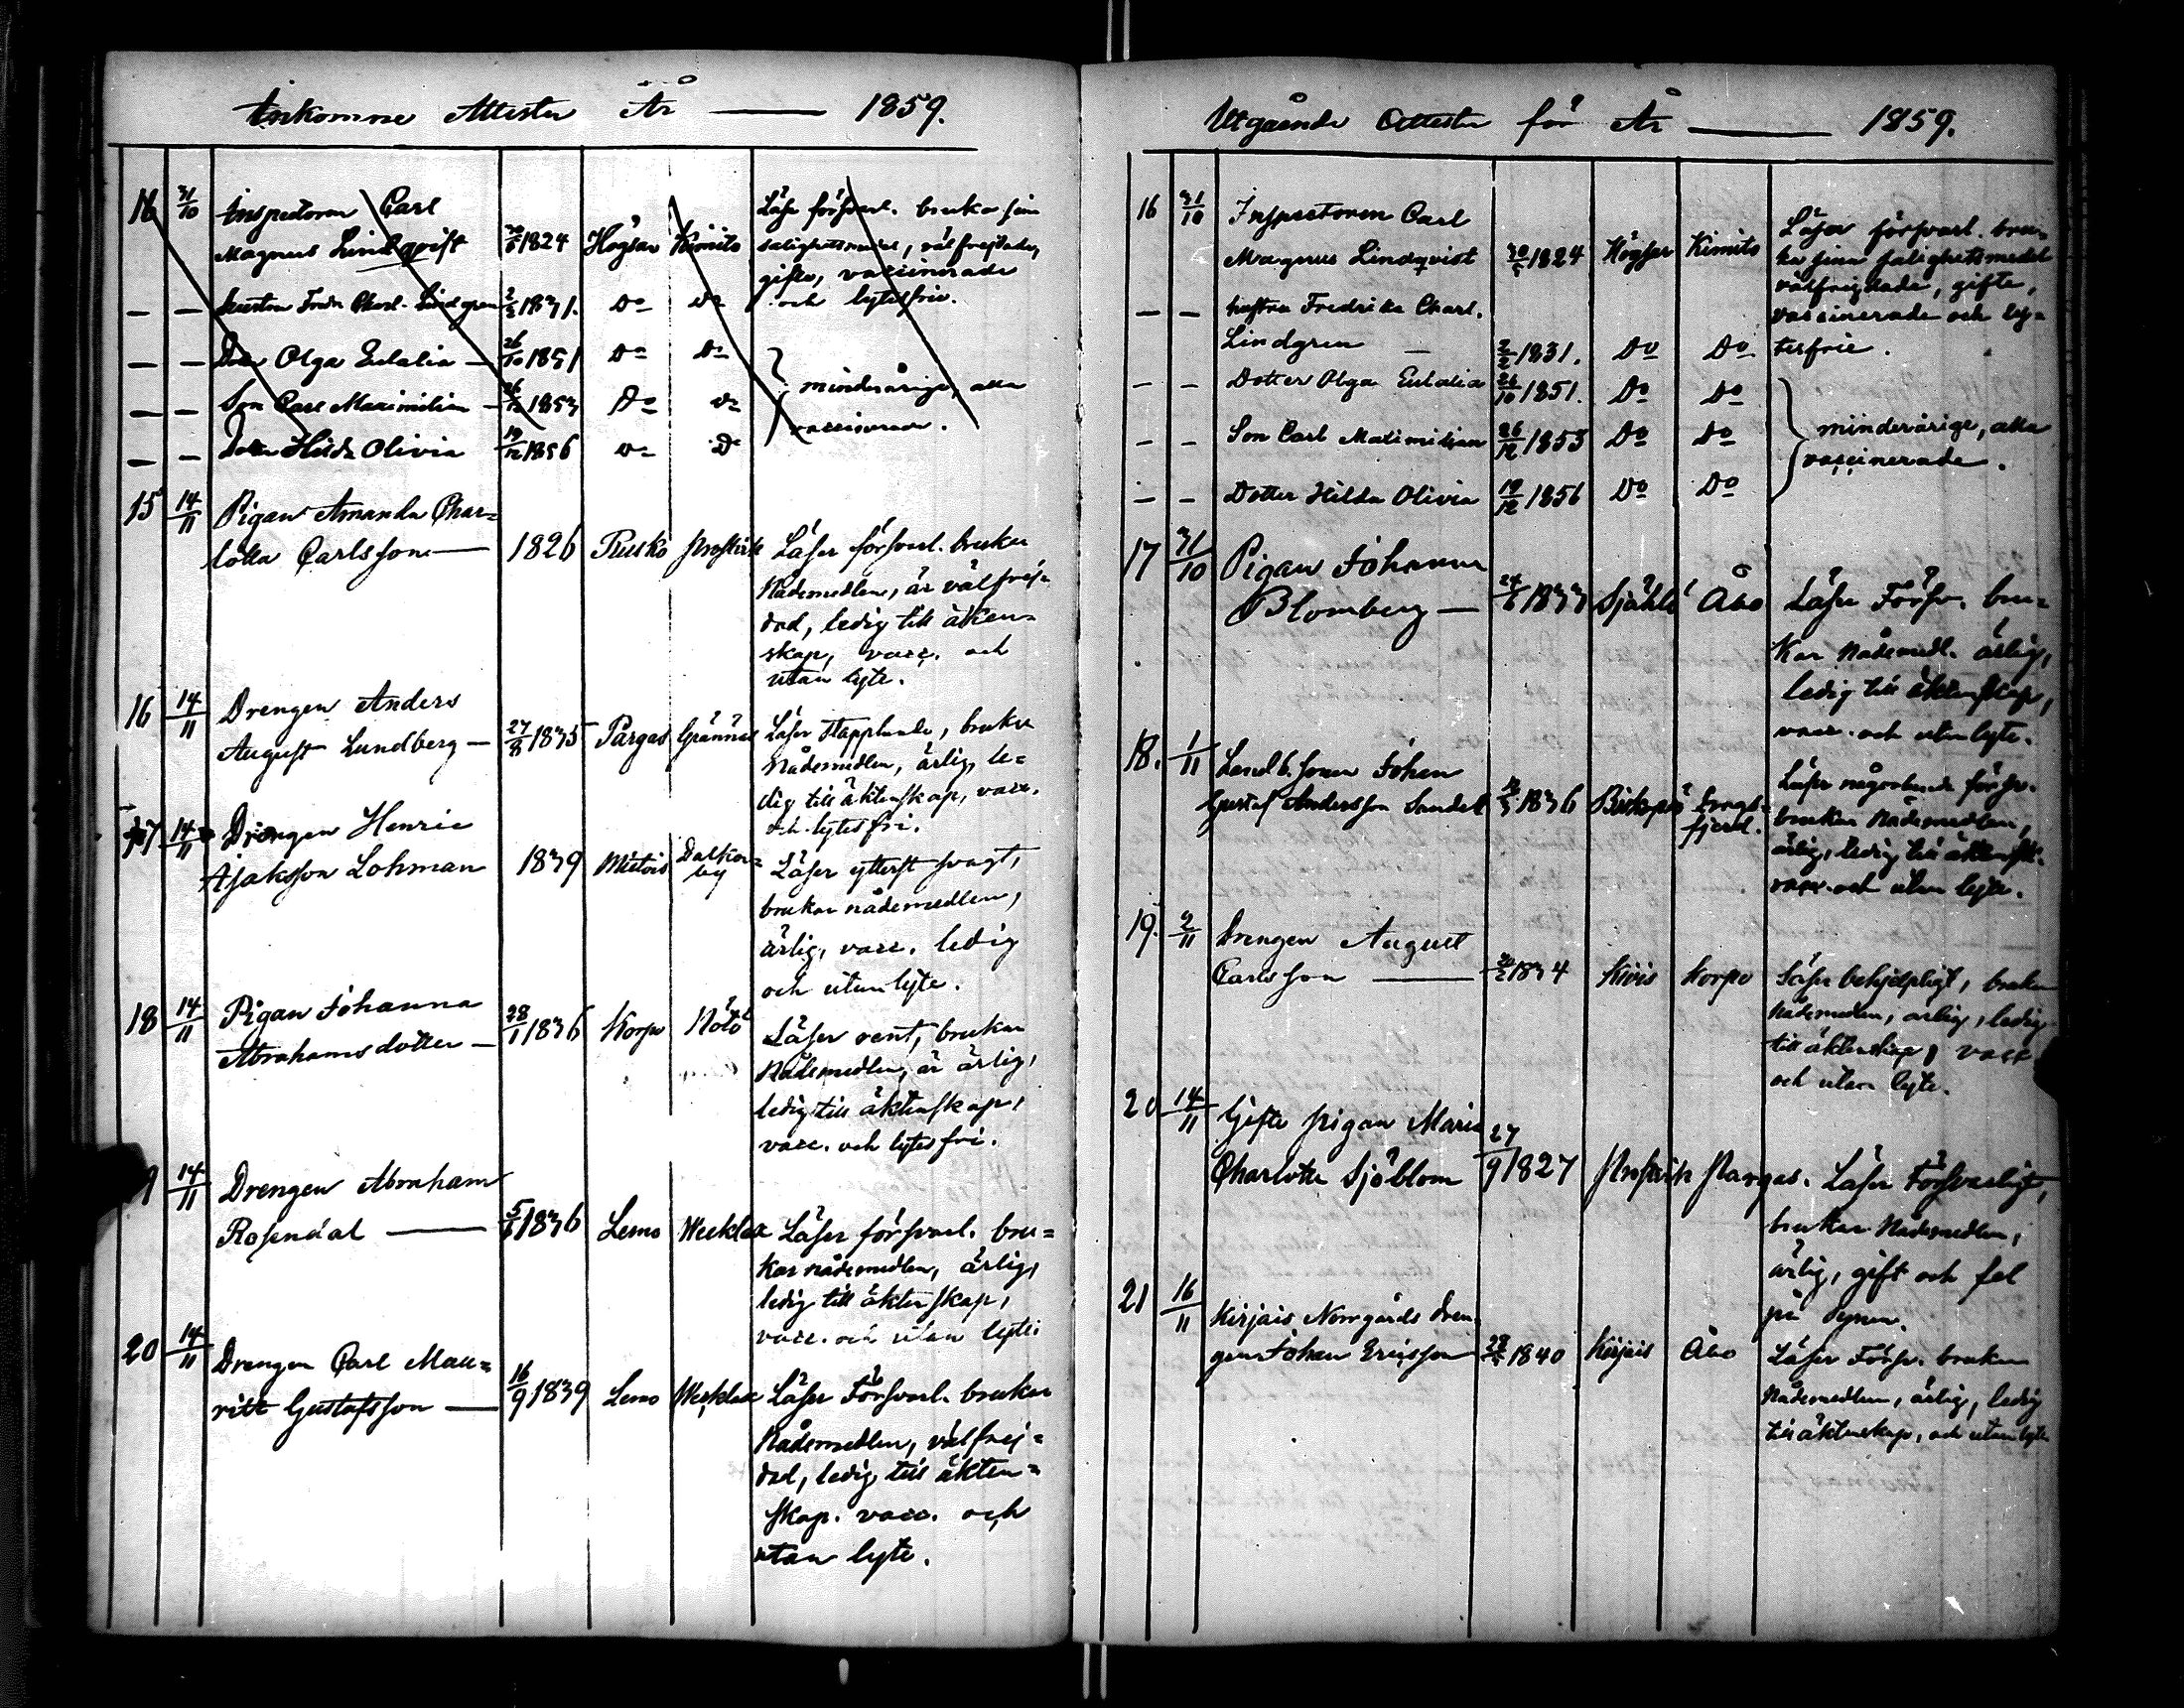 Inkomne Attester År — 1859.
16 31/10 Inspectoren Carl
Magnus Lindqvist 30/5 1824 Högsar Kimito
Läser försvarl. bruka sina
salighetsmedel, välfrejdade,
gifta, vaccinerade
och lytesfrie.
— — hustrun Fredr. Charl. Lindgren 2/2 1831. Do Do
— — Dotter Olga Eulalia — 26/10 1851 Do Do
— — Son Carl Maximilian — 26/12 1853 Do Do
minderårige, alla
vaccinerade.
— — Dotter Hilda Olivia 19/12 1856 Do Do
15 14/11 Pigan Amanda Char=
lotta Carlsson — 1826 Rusko Prostvik Läser försvarl. brukar
Nådemedlen, är välfrej=
dad, ledig till äkten=
skap, vacc. och
utan lyte.
16 14/11 Drengen Anders
August Lundberg — 27/8 1835 Pargas Grännäs Läser stapplande, brukar
Nådemedlen, ärlig, le=
dig till äktenskap, vacc.
och lytesfri.
17 14/11 Drengen Henric
Isaksson Lohman 1839 Mietois Dalkar=
by
Läser ytterst svagt,
brukar nådemedlen,
ärlig, vacc. ledig
och utan lyte.
18 14/11 Pigan Johanna
Abrahamsdotter — 28/1 1836 Korpo Nötö Läser rent, brukar
Nådemedlen, är ärlig,
ledig till äktenskap,
vacc. och lytesfri.
14/11 Drengen Abraham
Rosendal — 5/6 1836 Lemo Weeklax Läser försvarl. bru=
kar nådemedlen, ärlig,
ledig till äktenskap,
vacc. och utan lyte.
20 14/11 Drengen Carl Mau=
ritz Gustafsson — 16/9 1839 Lemo Weeklax Läser Försvarl. brukar
Nådemedlen, välfrej=
dad, ledig till äkten=
skap. vacc. och
utan lyte.
Utgående Attester för År — 1859.
16 31/10 Inspectoren Carl
Magnus Lindqvist 30/5 1824 Högsar Kimito
Läser försvarl. bru=
ka sina salighetsmedel
välfrejdade, gifte,
vaccinerade och ly=
tesfrie.
— — hustrun Fredrika Charl.
Lindgren — 2/2 1831. Do Do
— — Dotter Olga Eulalia 26/10 1851. Do Do
— — Son Carl Maximilian 26/12 1853 Do Do
minderårige, alla
vaccinerade.
— — Dotter Hilda Olivia 19/12 1856 Do Do
17 31/10 Pigan Johanna
Blomberg — 24/6 1833 Själö Åbo Läser Försv. bru=
kar Nådemedl. ärlig,
ledig till äktenskap,
vacc. och utan lyte.
18. 1/11 Landb. sonen Johan
Gustaf Andersson Sandell 1836 Biskopsö Dragsfjerd.
Läser någorlunda försv.
brukar Nådemedlen,
ärlig, ledig till äktensk.
vacc. och utan lyte.
19. 2/11 Drengen August
Carlsson — 1834 Kivis Korpo Läser behjelpligt, brukar
Nådemedlen, ärlig, ledig
till äktenskap, vacc.
och utan lyte.
20 14/11 Gifta pigan Maria
Charlotta Sjöblom 27/9 1827 Prostvik Pargas. Läser Försvarligt,
brukar Nådemedlen,
ärlig, gift och fel
på synen.
21 16/11 Kirjais Norrgårds dren
gen Johan Ericsson 1840 Kirjais Åbo Läser Försv. brukar
Nådemedlen, ärlig, ledig
till äktenskap, och utan lyte